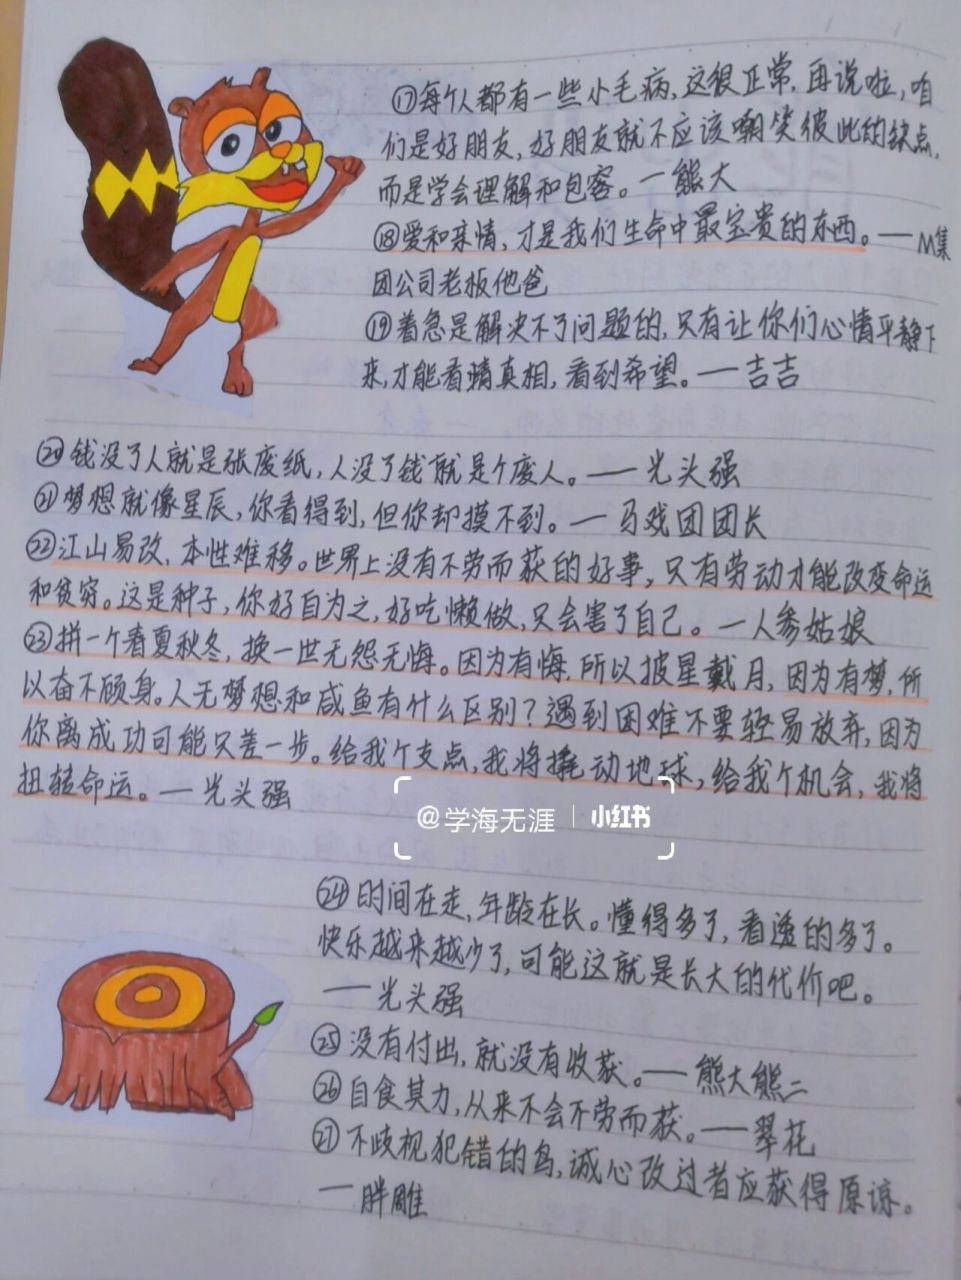 ⑰每个人都有一些小毛病,这很正常,再说啦,咱
们是好朋友,好朋友就不应该嘲笑彼此的缺点,
而是学会理解和包容。一熊大
⑱爱和亲情,才是我们生命中最宝贵的东西。——M集
团公司老板他爸
⑲着急是解决不了问题的,只有让你们心情平静下
来,才能看清真相,看到希望。——吉吉
⑳钱没了人就是张废纸,人没了钱就是个废人。——光头强
㉑梦想就像星辰,你看得到,但你却摸不到。——马戏团团长
㉒江山易改,本性难移。世界上没有不劳而获的好事,只有劳动才能改变命运
和贫穷。这是种子,你好自为之,好吃懒做,只会害了自己。一人参姑娘
㉓拼一个春夏秋冬,换一世无怨无悔。因为有悔,所以披星戴月,因为有梦,所
以奋不顾身。人无梦想和咸鱼有什么区别?遇到困难不要轻易放弃,因为
你离成功可能只差一步。给我个支点,我将撬动地球,给我个机会,我将
扭转命运。一光头强
@学海无涯 | 小红书
㉔时间在走,年龄在长。懂得多了,看透的多了。
快乐越来越少了,可能这就是长大的代价吧。
——光头强
㉕没有付出,就没有收获。——熊大熊二
㉖自食其力,从来不会不劳而获。——翠花
㉗不歧视犯错的鸟,诚心改过者应获得原谅。
一胖雕